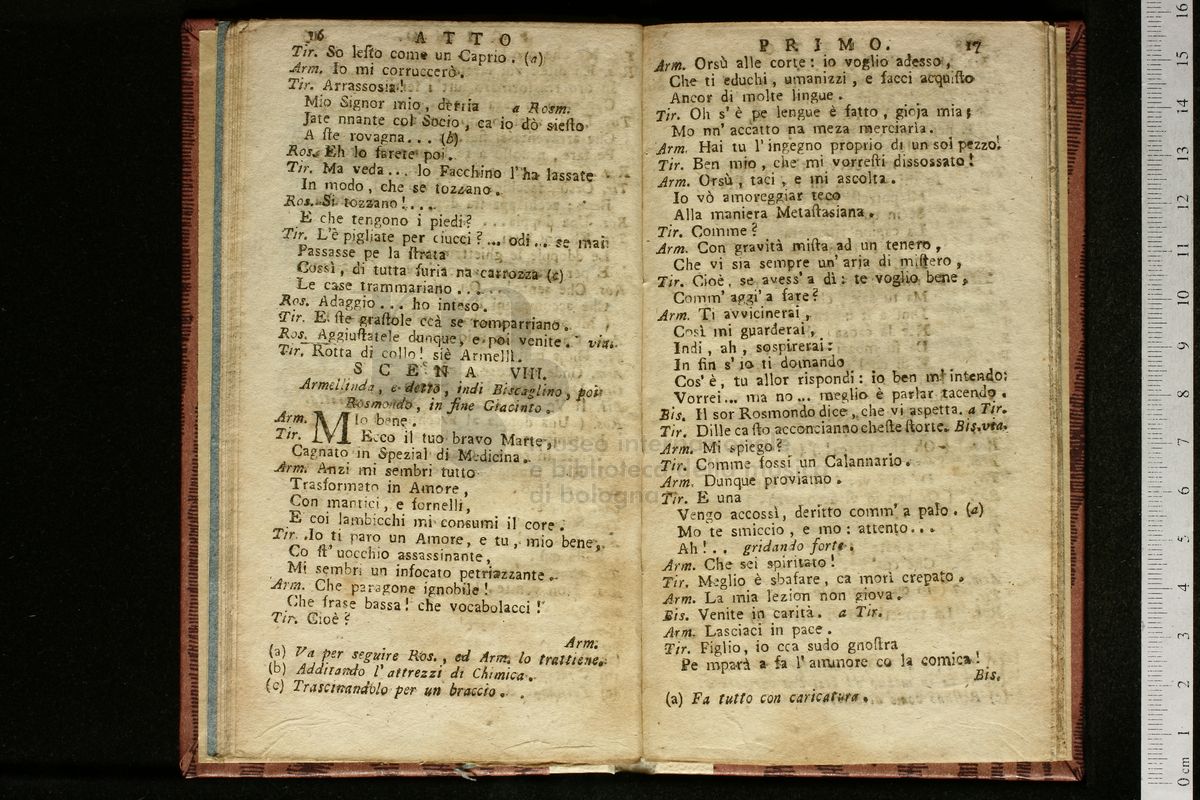 16 ATTO
Tir. So lesto come un Caprio. (a)
Arm. Io mi corruccerò.
Tir. Arrassosia!
Mio Signor mio, detria a Rosm.
Jate nnante col Socio, ca io dò siesto
A ste rovagna... (b)
Ros. Eh lo farete poi.
Tir. Ma veda... lo Facchino l'ha lassate
In modo, che se tozzano.
Ros. Si tozzano!...
E che tengono i piedi?
Tir. L'è pigliate per ciucci?... odi... se mai
Passasse pe la strata
Cossì, di tutta furia na carrozza (c)
Le case trammariano...
Ros. Adaggio... ho inteso.
Tir. E ste grastole ccà se romparriano.
Ros. Aggiustatele dunque, e poi venite. via.
Tir. Rotta di collo! siè Armell.
SCENA VIII.
Armellinda, e detto, indi Biscaglino, poi
Rosmondo, in fine Giacinto.
Arm. MIo bene.
Tir. Ecco il tuo bravo Marte,
Cagnato in Spezial di Medicina.
Arm. Anzi mi sembri tutto
Trasformato in Amore,
Con mantici, e fornelli,
E coi lambicchi mi consumi il core.
Tir. Io ti paro un Amore, e tu, mio bene,
Co st'uocchio assassinante,
Mi sembri un infocato petriazzante.
Arm. Che paragone ignobile!
Che frase bassa! che vocabolacci!
Tir. Cioè?
Arm.
(a) Va per seguire Ros., ed Arm. lo trattiene.
(b) Additando l'attrezzi di Chimica.
(c) Trascinandolo per un braccio.
PRIMO. 17
Arm. Orsù alle corte: io voglio adesso,
Che ti educhi, umanizzi, e facci acquisto
Ancor di molte lingue.
Tir. Oh s'è pe lengue è fatto, gioja mia;
Mo nn'accatto na meza merciaria.
Arm. Hai tu l'ingegno proprio di un sol pezzo!
Tir. Ben mio, che mi vorresti dissossato!
Arm. Orsù, taci, e mi ascolta.
Io vò amoreggiar teco
Alla maniera Metastasiana.
Tir. Comme?
Arm. Con gravità mista ad un tenero,
Che vi sia sempre un'aria di mistero,
Tir. Cioè, se avess'a dì: te voglio bene,
Comm'aggi'a fare?
Arm. Ti avvicinerai,
Così mi guarderai,
Indi, ah, sospirerai:
In fin s'io ti domando
Cos'è, tu allor rispondi: io ben m'intendo:
Vorrei... ma no... meglio è parlar tacendo.
Bis. Il sor Rosmondo dice, che vi aspetta. a Tir.
Tir. Dille ca sto acconcianno cheste storte. Bis. via.
Arm. Mi spiego?
Tir. Comme fossi un Calannario.
Arm. Dunque proviamo.
Tir. E una
Vengo accossì, deritto comm'a palo. (a)
Mo te smiccio, e mo: attento...
Ah!.. gridando forte.
Arm. Che sei spiritato!
Tir. Meglio è sbafare, ca morì crepato.
Arm. La mia lezion non giova.
Bis. Venite in carità. a Tir.
Arm. Lasciaci in pace.
Tir. Figlio, io cca sudo gnostra
Pe mparà a fa l'ammore co la comica!
Bis.
(a) Fa tutto con caricatura.
museo internazionale
e biblioteca della musica
di bologna
0 cm 1 2 3 4 5 6 7 8 9 10 11 12 13 14 15 16